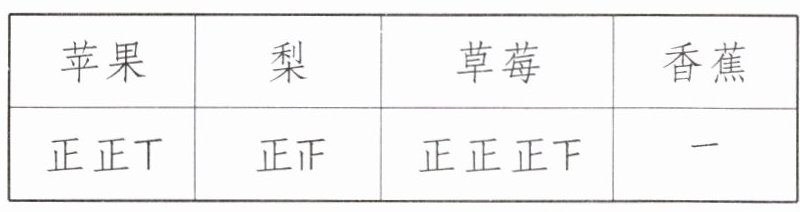 苹果 梨 草莓 香蕉
正正丅 正𝍵 正正正下 一